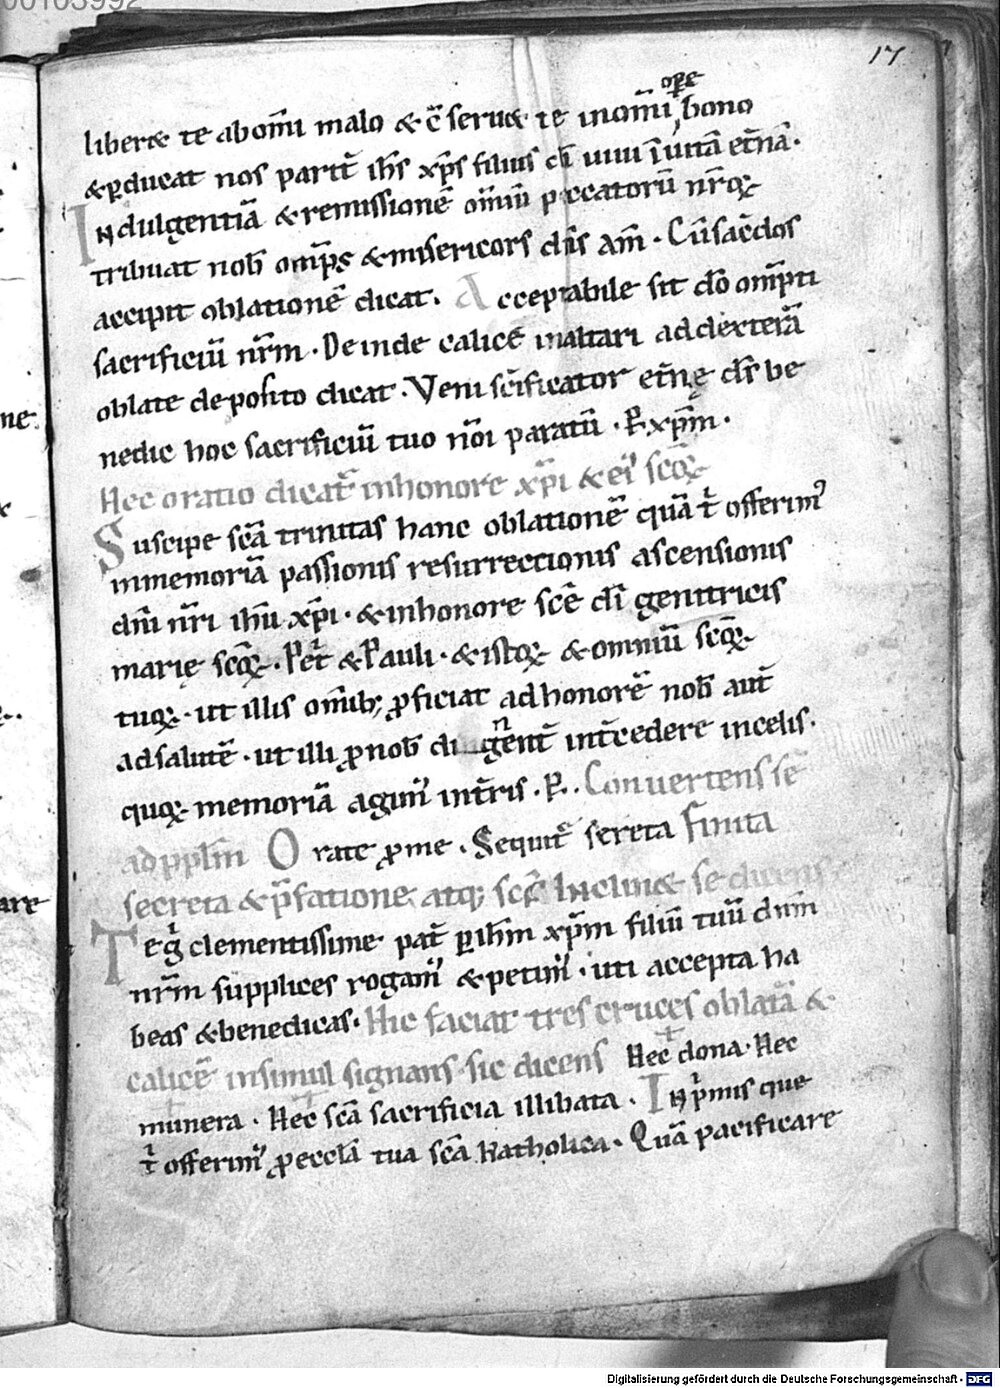 00103992
17
ope
liberæ te abom̄i malo & c̄seruæ te inom̄i bono
& ꝑducat nos parit̄ ih̄s xp̄s filius di uiui ī uitā et̄nā.
Indulgentiā & remissionē om̄iū peccatorū nr̄oꝝ
tribuat nob̄ om̄ps & misericors dn̄s am̄. Cū sac̄dos
accipit oblationē dicat. Acceptabile sit dō om̄pti
sacrificiū nr̄m. Deinde calicē inaltari addexterā
oblate deposito dicat. Veni sc̄ificator et̄nę ds̄ be
nedic hoc sacrificiū tuo nōi paratū. P. xp̄m.
Hec oratio dicat̄ inhonore xp̄i & ei᷒ scōꝝ
Suscipe sc̄ā trinitas hanc oblationē quā t̄ offerim᷒
inmemoriā passionis resurrectionis ascensionis
dn̄i nr̄i ih̄u xp̄i. & inhonore sc̄ē dī genitricis
marię scōꝝ. Pet̄ & Pauli. & istoꝝ & omniū scōꝝ
tuoꝝ. ut illis om̄ib; ꝓficiat adhonorē nob̄ aut̄
adsalutē. ut illi ꝓnob̄ dignent̄ int̄cedere incelis.
quoꝝ memoriā agim᷒ int̄ris. P. Convertens sē
adpplm̄ Orate ꝓme. Sequit̄ sereta Finita
secreta & p̄fatione atq; sc̄s Inclinæ se dicens
Te gͥ clementissime pat̄ ꝑih̄m xp̄m filiū tuū dnm̄
nr̄m supplices rogam᷒ & petim᷒. uti accepta ha
beas & benedicas. Hic faciat tres cruces oblatā &
calicē insimul signans sic dicens Hec dona. Hec
munera. Hec sc̄ā sacrificia illibata. Inpͥmis que
tͥ offerim᷒ ꝓeccl̄a tua sc̄ā Katholica. Quā pacificare
ne
are
Digitalisierung gefördert durch die Deutsche Forschungsgemeinschaft - DFG